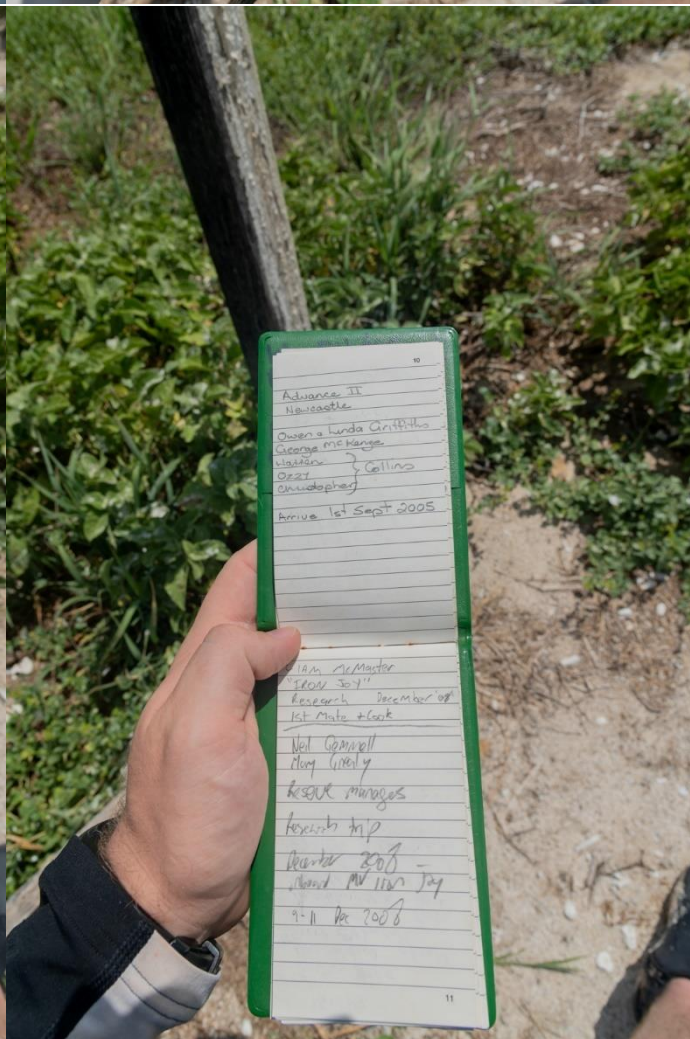 10
Advance II
Newcastle
Owen & Linda Griffiths
George McKenge
Ozzy
Christopher
} Collins
Arrive 1st Sept 2005
McMaster
"IRON JOY"
Research December
1st Mate + Cook
Neil Gemmell
Mary
managers
Research trip
December 2008
MV Iron Joy
9-11 Dec 2008
11